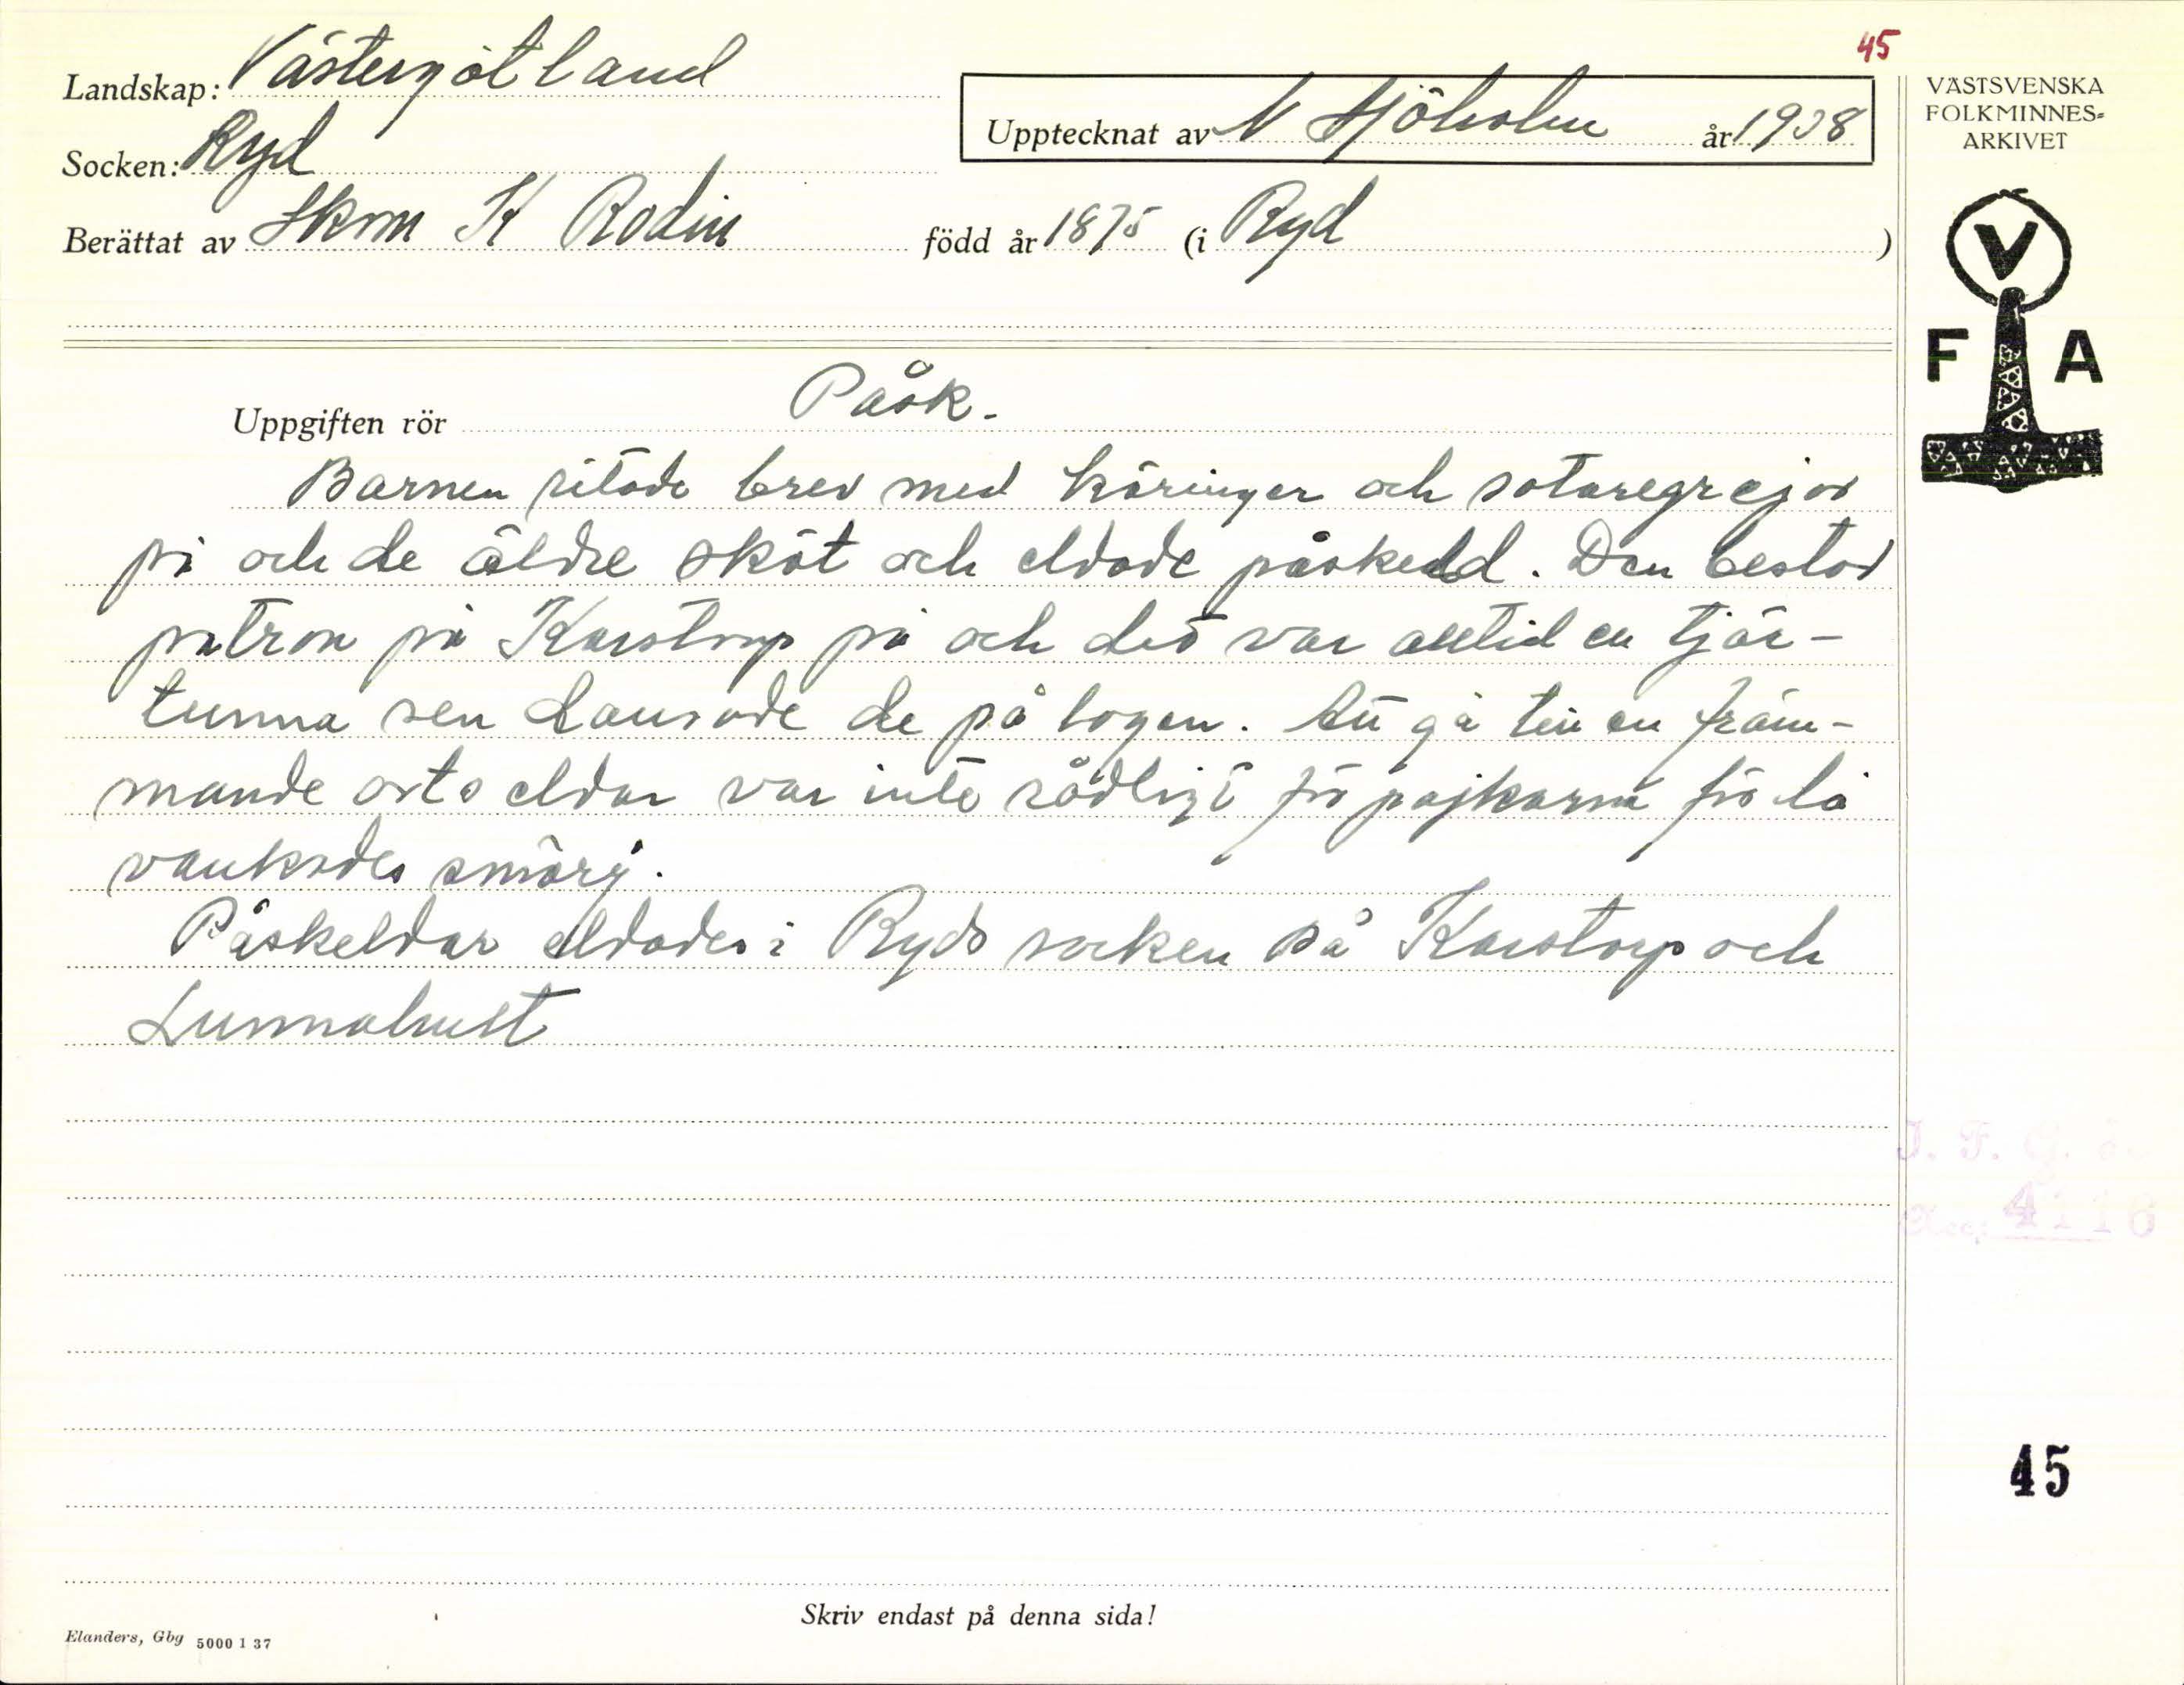 45
Landskap: Västergötland
Upptecknat av N Sjöholm år 1938
VÄSTSVENSKA
FOLKMINNES-
ARKIVET
Socken: Ryd
Berättat av Skom K Rodin född år 1875 (i Ryd )
V
F A
Uppgiften rör Påsk.
Barnen ritade brev med käringer och sotaregrejor
på och de äldre sköt och eldade påskeld. Den bestod
patron på Karstorp på och det var alltid en tjär-
tunna sen dansade de på logen. Att gå till en främ-
mande orts eldar var inte rådligt för pojkarna för då
vankades smörj.
Påskeldar eldades i Ryds socken på Karstorp och
Lunnalust
J. F. G.
Acc: 4116
45
Skriv endast på denna sida!
Elanders, Gbg 5000 1 37